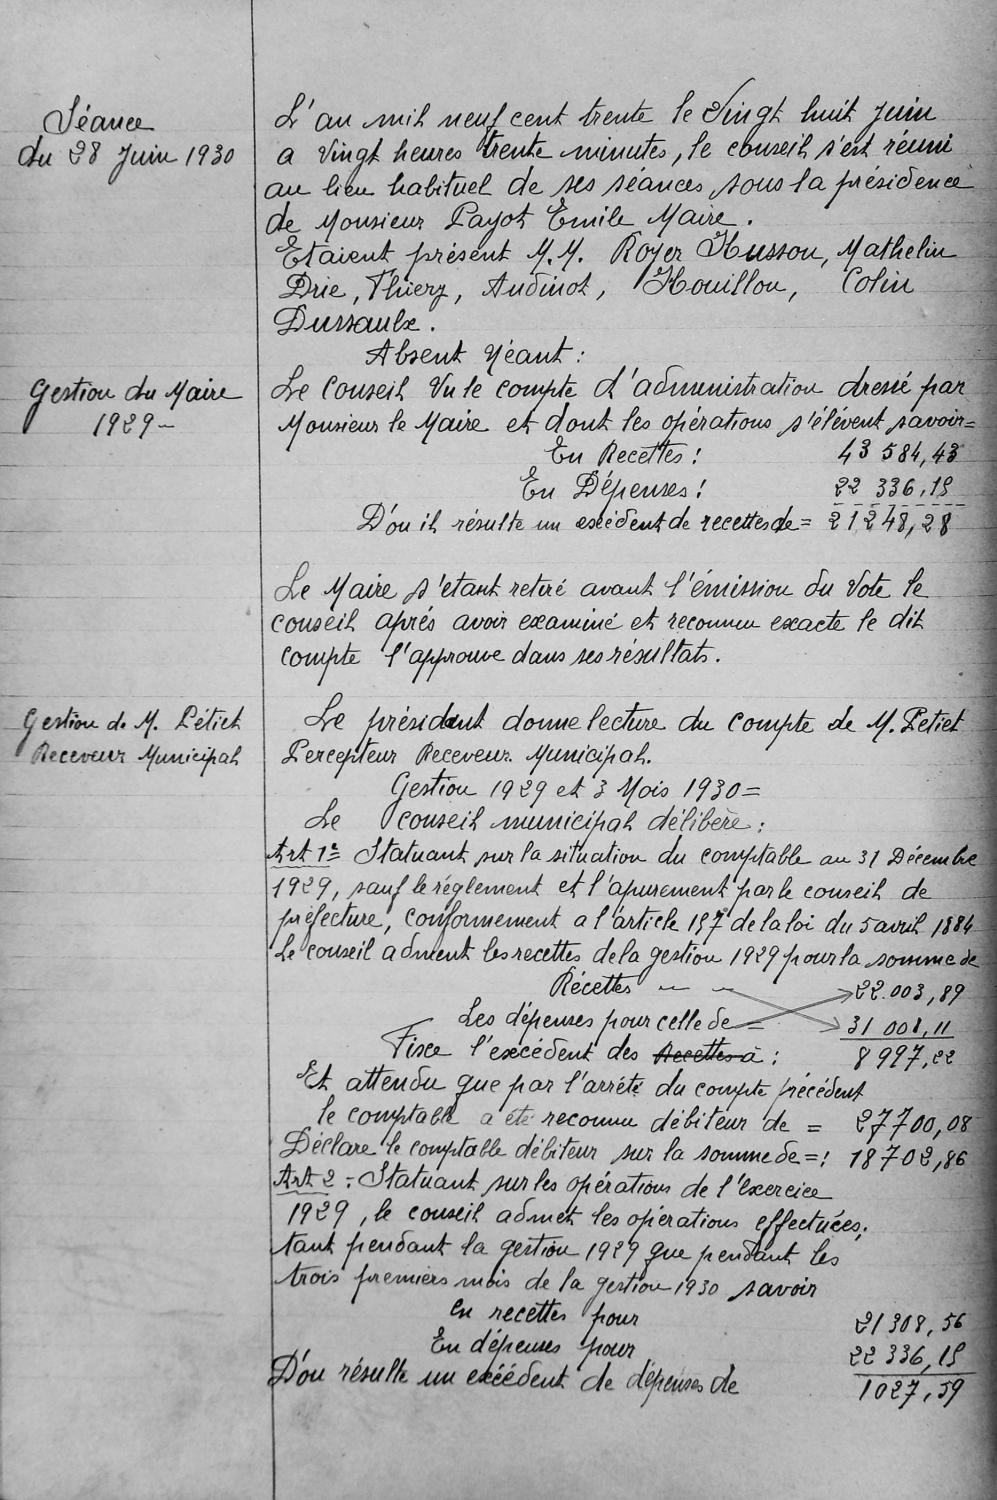 Séance
du 28 Juin 1930
L'an mil neuf cent trente le Vingt huit Juin
a Vingt heures trente minutes, le conseil s'est réuni
au lieu habituel de ses séances, sous la présidence
de Monsieur Payot Emile Maire.
Etaient présent M.M. Royer Husson, Mathelin
Drie, Thiery, Audinot, Houillon, Colin
Dussaulx.
Absent Néant :
Gestion du Maire
1929 -
Le Conseil Vu le compte d'administration dressé par
Monsieur le Maire et dont les opérations s'élévent savoir=
En Recettes ! 43 584,43
En Dépenses ! 22 336,15
D'ou il résulte un exédent de recettes de = 21 248,28
Le Maire s'etant retiré avant l'émission du Vote le
conseil aprés avoir examiné et reconnu exacte le dit
compte l'approuve dans ses résultats.
Gestion de M. Pétiet
Receveur Municipal
Le président donne lecture du compte de M. Petiet
Percepteur Receveur. Municipal.
Gestion 1929 et 3 Mois 1930 =
Le conseil municipal délibère :
Art 1er Statuant sur la situation du comptable au 31 Décembre
1929, sauf le réglement et l'apurement par le conseil de
préfecture, conformement a l'article 157 de la loi du 5 avril 1884
Le conseil adment les recettes de la gestion 1929 pour la somme de
Récettes " " 22.003,89
Les dépenses pour celle de = 31 001,11
Fixe l'excédent des Recettes à : 8 997,22
Et attendu que par l'arrété du compte précédent
le comptabl a été reconnu débiteur de = 27700,08
Déclare le comptable débiteur sur la somme de = : 18702,86
Art 2 : Statuant sur les opérations de l'Exercice
1929, le conseil admet les opérations effectuées,
tant pendant la gestion 1929 que pendant les
trois premiers mois de la gestion 1930 savoir
en recettes pour 21 308,56
En dépenses pour 22 336,15
D'ou résulte un excédent de dépenses de 1027,59